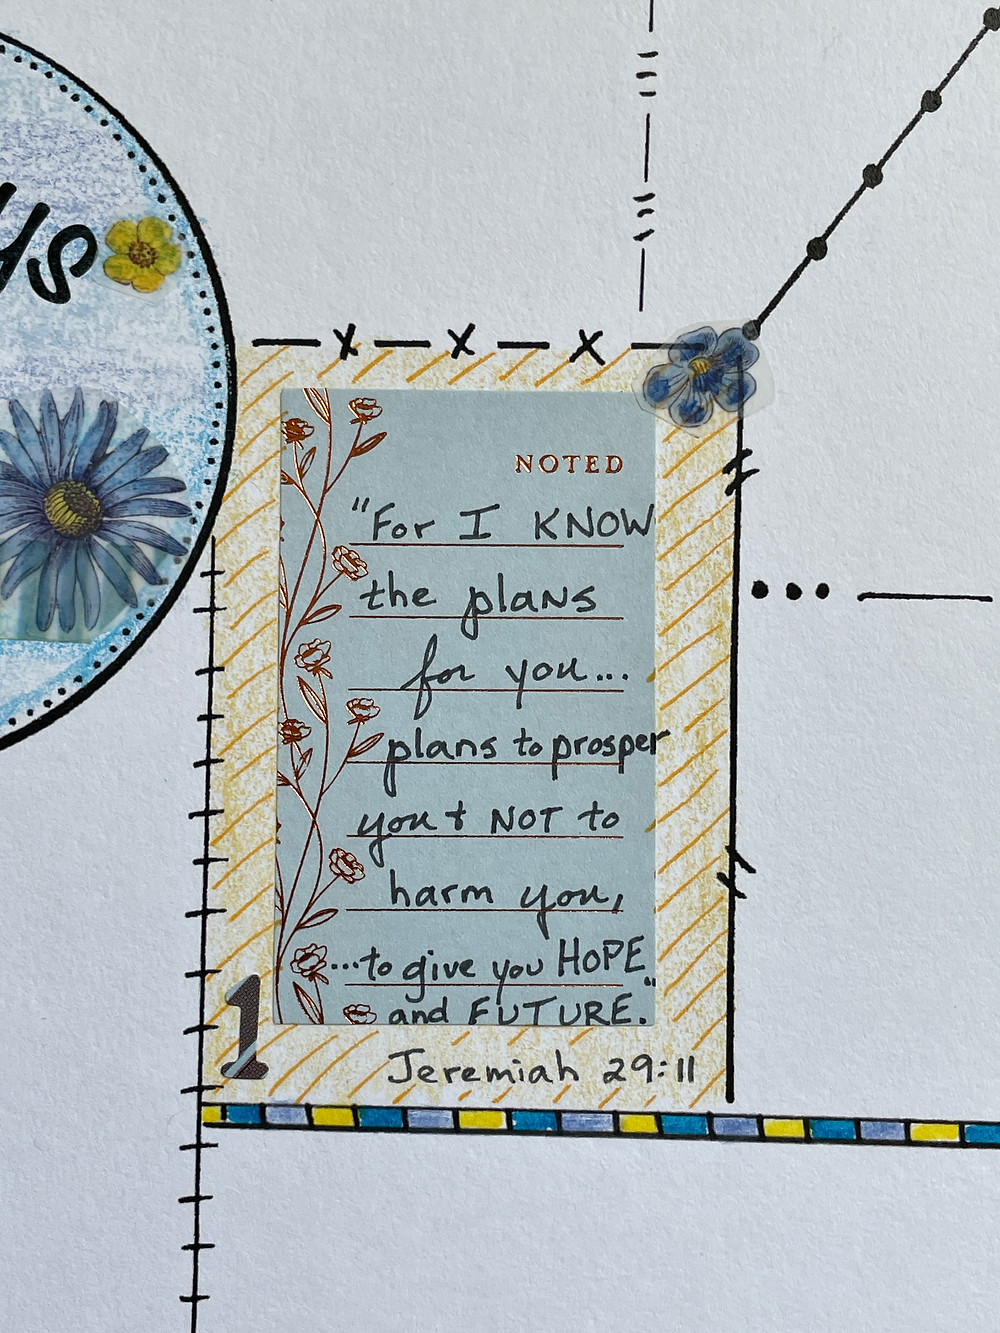 NOTED
"For I KNOW
the plans
for you...
plans to prosper
you + NOT to
harm you,
...to give you HOPE
and FUTURE."
1
Jeremiah 29:11